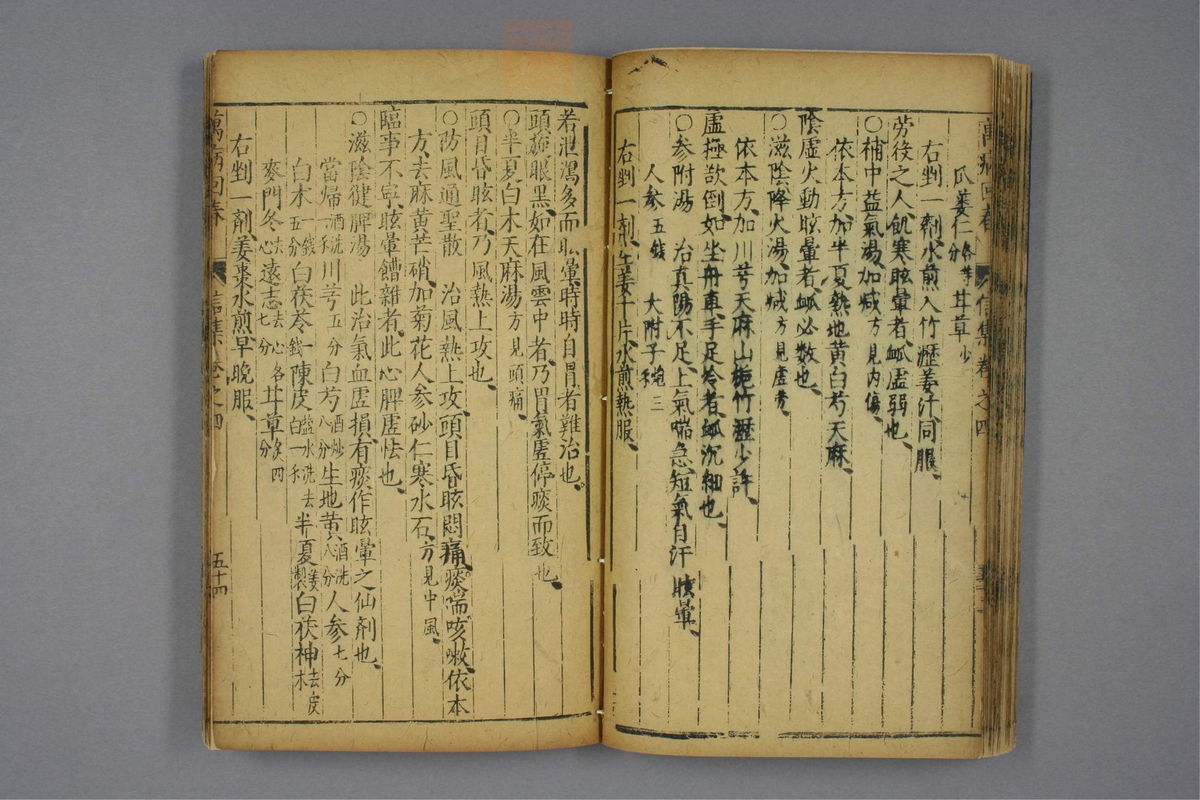 萬病回春 信集 卷之四
瓜蔞仁各等分 甘草少
右剉一劑水煎入竹瀝姜汁同服
勞役之人飢寒眩暈者䘑虛弱也
○補中益氣湯加减方見內傷
依本方加半夏熱地黄白芍天麻
陰虛火動眩暈者䘑必數也
○滋陰降火湯加减方見虛勞
依本方加川芎天麻山梔竹瀝少許
虛極欲倒如坐舟車手足冷者䘑沉細也
○參附湯 治真陽不足上氣喘急短氣自汗眩暈
人參五錢 大附子炮三錢
右剉一劑生姜十片水煎熱服
若泄瀉多而眩暈時時自冒者難治也
頭旋眼黑如在風雲中者乃胃氣虛停痰而致也
○半夏白木天麻湯方見頭痛
頭目昏眩者乃風熱上攻也
○防風通聖散 治風熱上攻頭目昏眩悶痛痰喘咳嗽依本
方去麻黄芒硝加菊花人參砂仁寒水石方見中風
臨事不寧眩暈䭚雜者此心脾虛怯也
○滋陰健脾湯 此治氣血虛損有痰作眩暈之仙劑也
當歸酒洗一錢 川芎五分 白芍酒炒八分 生地黄酒洗八分 人參七分
白木一錢五分 白茯苓一錢 陳皮鹽水洗去白一錢 半夏姜製 白茯神去皮木
麥門冬去心 遠志去心各七分 甘草炙四分
右剉一劑姜棗水煎早晚服
萬病回春 信集 卷之四 五十四